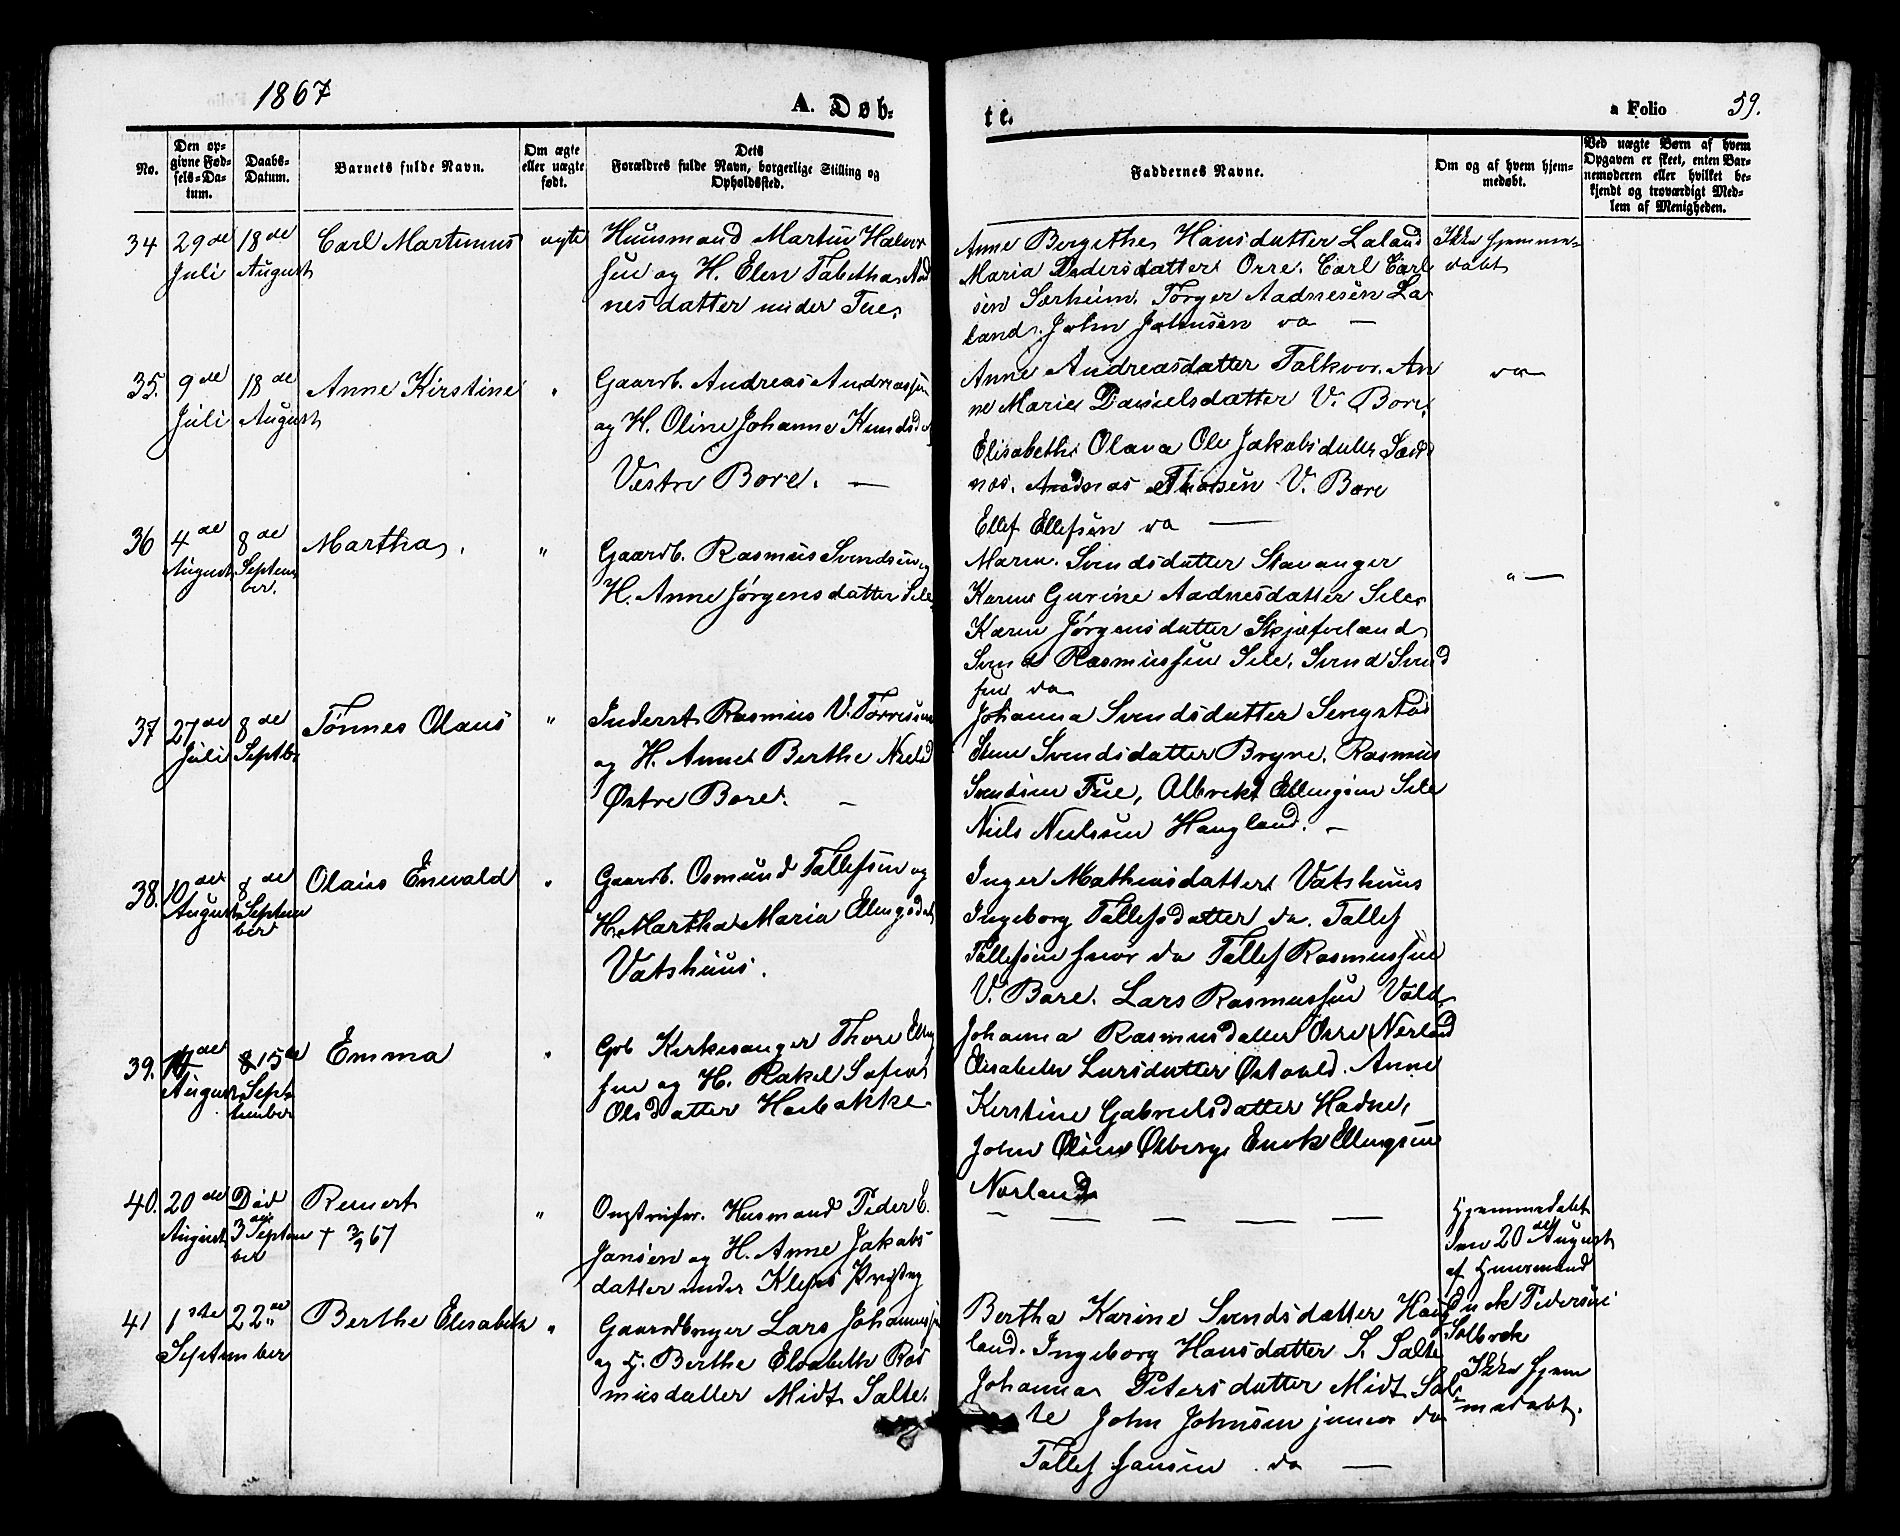 1867
A. Døb-
te.
a Folio 59.
No.
Den op-
givne Fød-
sels-Da-
tum.
Daabs-
Datum.
Barnets fulde Navn.
Om ægte
eller uægte
født.
Dets
Forældres fulde Navn, borgerlige Stilling og
Opholdssted.
Faddernes Navne.
Om og af hvem hjem-
medøbt.
Ved uægte Børn af hvem
Opgaven er skeet, enten Bar-
nemoderen eller hvilket be-
kjendt og troværdigt Med-
lem af Menigheden.
34
29de
Juli
18de
August
Carl Martinus
ægte
Huusmand Martin Halvor
sen og H. Elen Tabetha Aad
nesdatter under Tue,
Anne Bergithe Hansdatter Laland
Maria Pedersdatter Orre. Carl Carl
sen Særheim. Tørger Aadnesen La
land. John Johnsen do —
Ikke hjemme-
døbt
35.
9de
Juli
18de
August
Anne Kirstine
"
Gaardb. Andreas Andreassen
og H. Oline Johanne Knudsd
Vestre Bore. —
Anne Andreasdatter Folkvor. An
ne Marie Danielsdatter V. Bore.
Elisabeth Olava Ole Jakobsdatter Sand
nes. Thorsen V. Bore
Ellef Ellefsen do —
do
36
4de
August
8de
Septem
ber.
Martha.
"
Gaardb. Rasmus Svendsen og
H. Anne Jørgensdatter Sele
Maren Svendsdatter Stavanger
Karen Gurine Aadnesdatter Sele
Karen Jørgensdatter Skjæfveland
Svend Rasmussen Sele, Svend Svend
sen do
" —
37
27de
Juli
8de
Septbr
Tønnes Olaus
"
Inderst Rasmus V. Torressen
og H. Anne Berthe Nielsd
Østre Bore. —
Johanna Svendsdatter
Svendsdatter Bryne. Rasmus
Svendsen Tue, Albrekt Ellingsen Sele
Niels Nielsen Haugland. —
38.
10de
August
8de
Septem
ber
Olaus Enevald
"
Gaardb. Osmund Tollefsen og
H. Martha Maria Ellingsdat
Vatshuus.
Inger Mathiasdatter Vatshuus
Ingeborg Tollefsdatter do. Tollef
Tollefsen do Tollef Rasmussen
V. Bore. Lars Rasmussen Vold
39.
de
August
8 15de
Sep-
tember
Emma
"
Gbr Kirkesanger Thore Elling
sen og H. Rakel Sofia
Olsdatter Hoibakke
Johanna Rasmusdatter Orre (Nerland
Elisabeth Larsdatter Østvold. Anne
Kirstine Gabrielsdatter Hadne,
John Olsen Ølberg Enok Ellingsen
Norland
40.
20de
August
Død
3die Septem
ber
Reinert
† 3/9 67
"
Huusmand Peder E.
Jansen og H. Anne Jakobs
datter under Klepps
— — — — —
Hjemmedøbt
den 20de August
af Huusmand
Enok Pedersen
Solbrek
41
1ste
September
22de
Berthe Elisabeth
"
Gaardbruger Lars Johannesen
og H. Berthe Elisabeth Ras
musdatter Midt Salte.
Bertha Karine Svendsdatter Haug
land. Ingeborg Hansdatter S. Salte
Johanna Petersdatter Midt Sal-
te John Johnsen junior do
Tollef Hansen do —
Ikke hjem
medøbt.